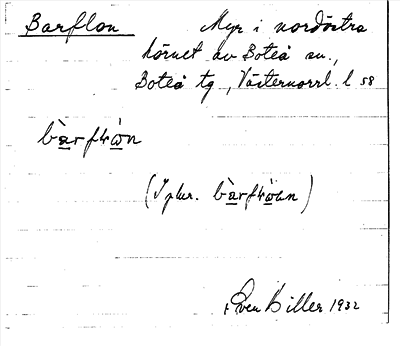 Barflon Myr i nordöstra
hörnet av Boteå sn.,
Boteå tg, Västernorrl. l 58
bàrfɬòn
(I plur. bàrfɬòen)
Sven Hiller 1932